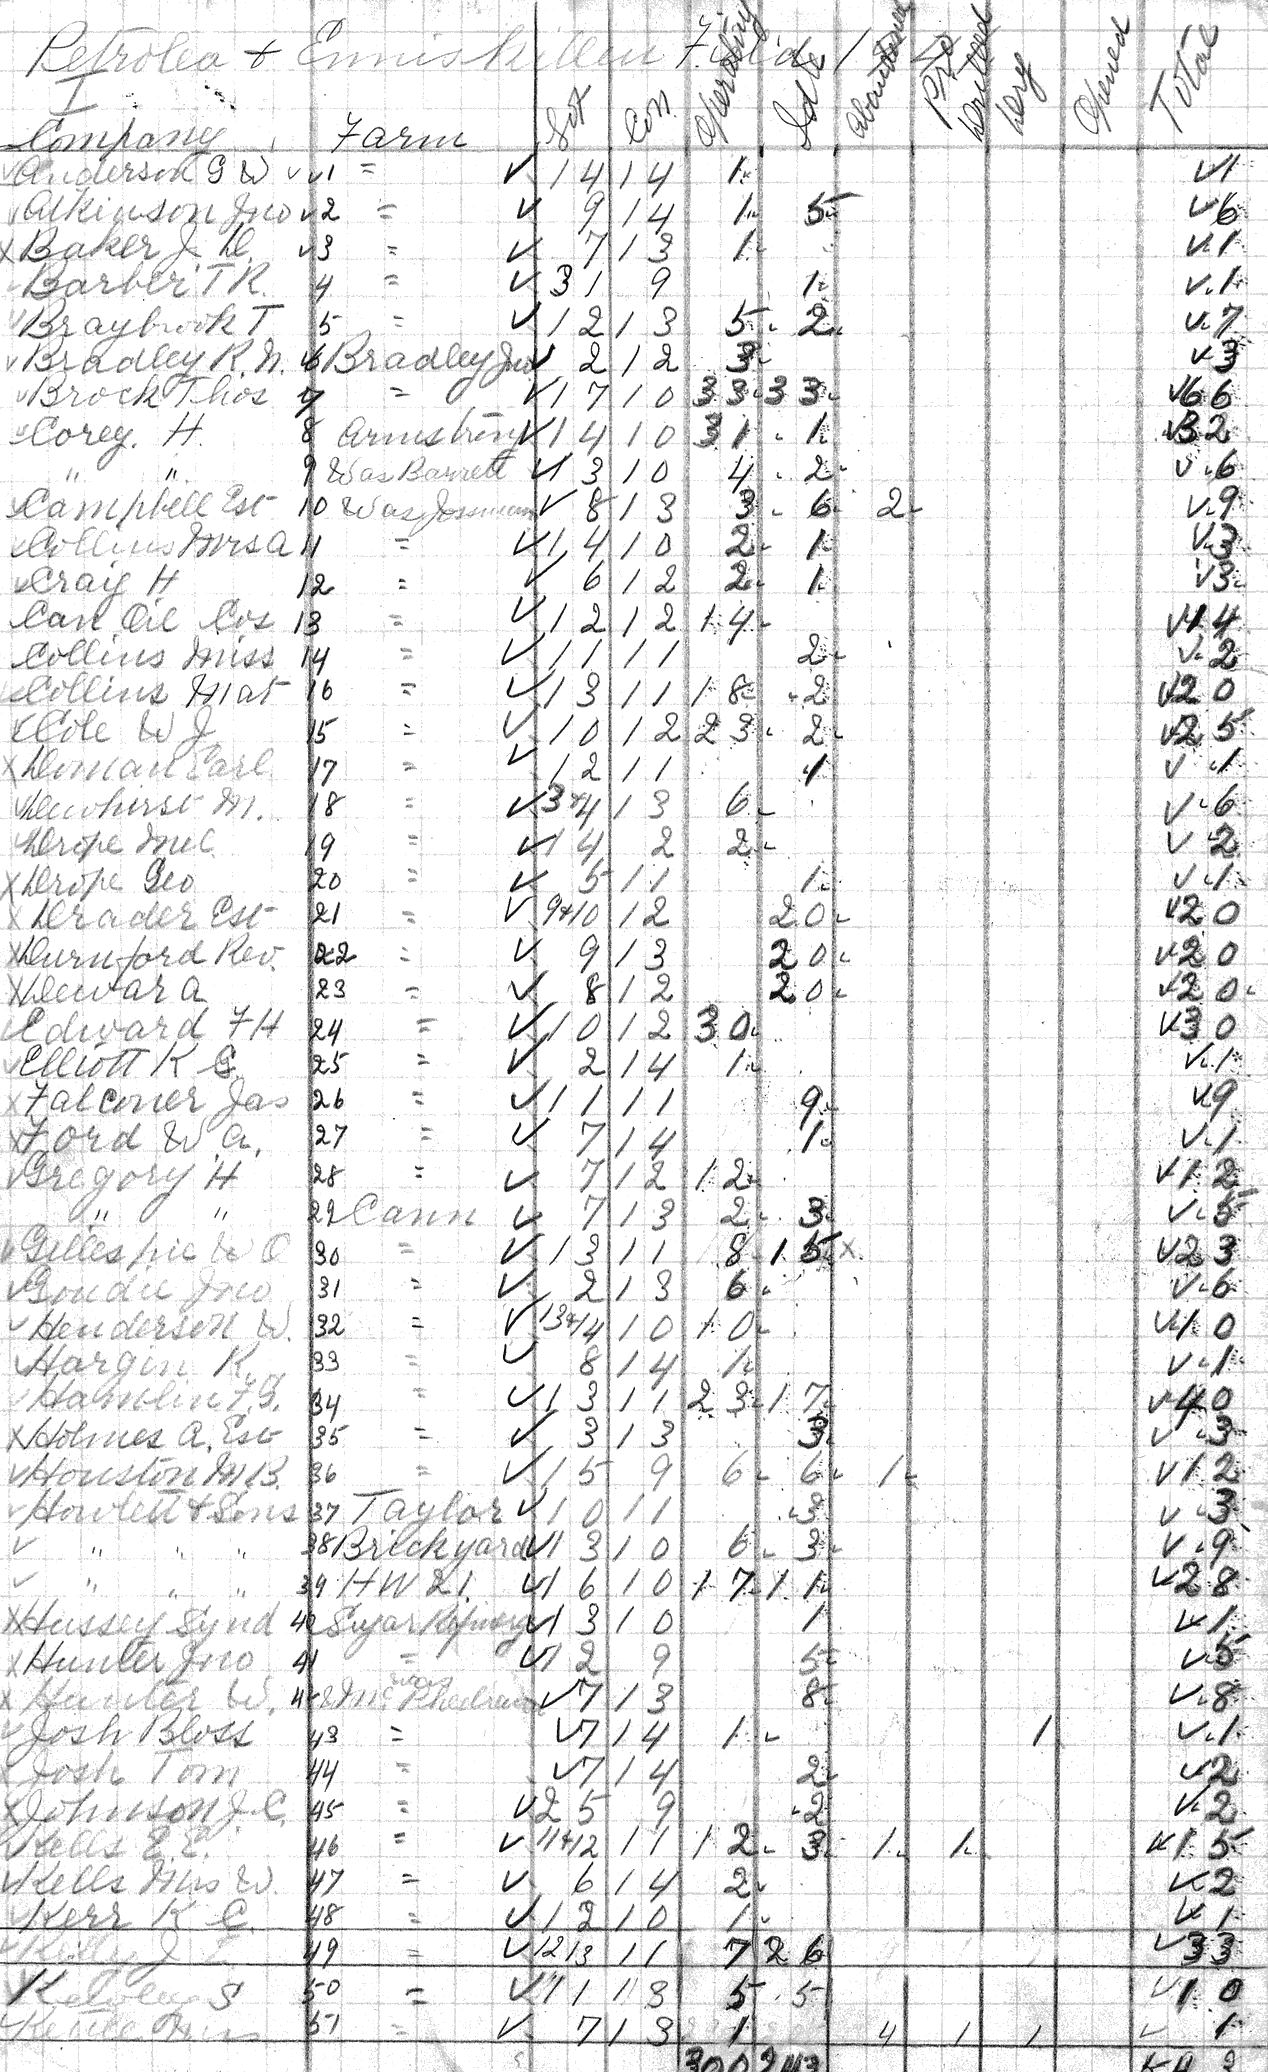 Petrolea & Enniskillen Field
I
Company Farm Lot Con. Operating Idle Abandoned Pro Drilled Dry Opened Total
✓Anderson G W ✓ ✓1 = ✓ 14 14 1 ✓1
✓Atkinson Jno ✓2 = ✓ 9 14 1 5 ✓6
XBaker J. D. ✓3 = ✓ 7 13 1 ✓1
✓Barber T R. 4 = ✓ 31 9 1 ✓1
✓Braybrook T 5 = ✓ 12 13 5 2 ✓7
✓Bradley R. N. 6 Bradley Jno ✓ 2 12 3 ✓3
✓Brock Thos 7 = ✓ 17 10 33 33 ✓66
✓Corey. H. 8 Armstrong ✓ 14 10 31 1 ✓32
" " 9 Was Barrett ✓ 13 10 4 2 ✓6
✓Campbell Est 10 Was ✓ 8 13 3 6 2 ✓9
✓Collins Mrs A 11 = ✓ 14 10 2 1 ✓3
✓Craig H 12 = ✓ 6 12 2 1 ✓3
Can Oil Cos 13 = ✓ 12 12 14 ✓14
Collins Miss 14 = ✓ 11 11 2 ✓2
✓Collins Mat 16 = ✓ 13 11 18 2 ✓20
✓Cole W J 15 = ✓ 10 12 23 2 ✓25
XDoman Earl 17 = ✓ 12 11 1 ✓1
✓Dewhirst M. 18 = ✓ 3&4 13 6 ✓6
✓Drope 19 = ✓ 14 2 2 ✓2
XDrope Geo 20 = ✓ 5 11 1 ✓1
XDrader Est 21 = ✓ 9&10 12 20 ✓20
XDurnford Rev. 22 = ✓ 9 13 20 ✓20
XDewar A 23 = ✓ 8 12 20 ✓20
Edward F H 24 = ✓ 10 12 30 ✓30
✓Elliott K G. 25 = ✓ 2 14 1 ✓1
XFalconer Jas 26 = ✓ 11 11 9 ✓9
XFord W. A. 27 = ✓ 7 14 1 ✓1
✓Gregory H 28 = ✓ 7 12 12 ✓12
" " 29 Cann ✓ 7 13 2 3 ✓5
✓Gillespie W O 30 = ✓ 13 11 8 15 x ✓23
✓Goudie Jno 31 = ✓ 2 13 6 ✓6
✓Henderson W. 32 = ✓ 13&14 10 10 ✓10
✓Hargin R. 33 = ✓ 8 14 1 ✓1
✓Hamlin F. G. 34 = ✓ 13 11 23 17 ✓40
XHolmes A. Est 35 = ✓ 3 13 3 ✓3
✓Houston M B. 36 = ✓ 15 9 6 6 1 ✓12
✓Howlett & Sons 37 Taylor ✓ 10 11 3 ✓3
✓ " " " 38 Brickyard ✓ 13 10 6 3 ✓9
✓ " " " 39 HW 21. ✓ 16 10 17 11 ✓28
XHussey Synd 40 Sugar Refinery ✓ 13 10 1 ✓1
XHunter Jno 41 = ✓ 12 9 5 ✓5
XHunter W. 42 was McPhedran ✓ 7 13 8 ✓8
✓Josh Bloss 43 = ✓ 7 14 1 1 ✓1
Josh Tom 44 = ✓ 7 14 2 ✓2
XJohnson J. C. 45 = ✓ 25 9 2 ✓2
✓Kells E. E. 46 = ✓ 11&12 11 12 3 1 1 ✓15
✓Kells Mrs W. 47 = ✓ 6 14 2 ✓2
✓Kerr K C. 48 = ✓ 12 10 1 ✓1
✓Kelly J 49 = ✓ 12 13 11 7 26 ✓33
S 50 = ✓ 11 13 5 5 ✓10
Mrs 51 = ✓ 7 13 1 4 1 1 ✓ 1
300 243 543